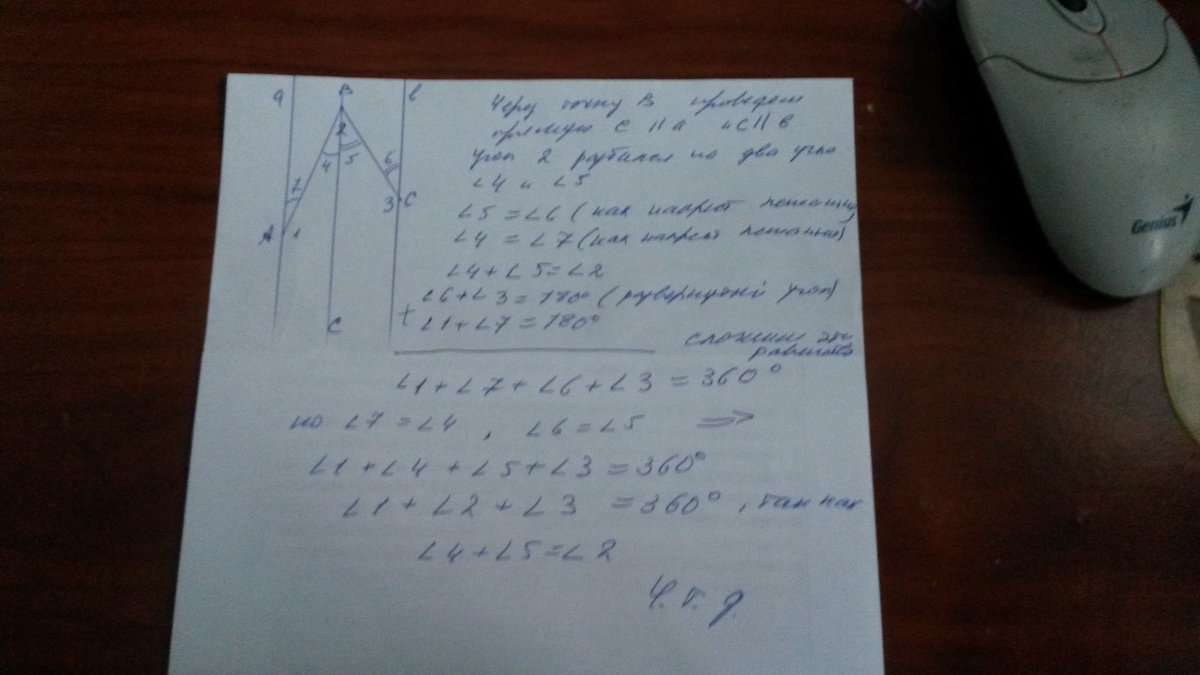 a B b
2
4 5 6
7
A 1 3 C
C
Через точку B проведем
прямую C || a и C || в
Угол 2 разбился на два угла
∠4 и ∠5
∠5 = ∠6 (как накрест лежащие)
∠4 = ∠7 (как накрест лежащий)
∠4 + ∠5 = ∠2
∠6 + ∠3 = 180° (развернутый угол)
+ ∠1 + ∠7 = 180°
сложим эти
равенства
∠1 + ∠7 + ∠6 + ∠3 = 360°
но ∠7 = ∠4 , ∠6 = ∠5 ⇒
∠1 + ∠4 + ∠5 + ∠3 = 360°
∠1 + ∠2 + ∠3 = 360° , так как
∠4 + ∠5 = ∠2
Ч. т. д.
Genius